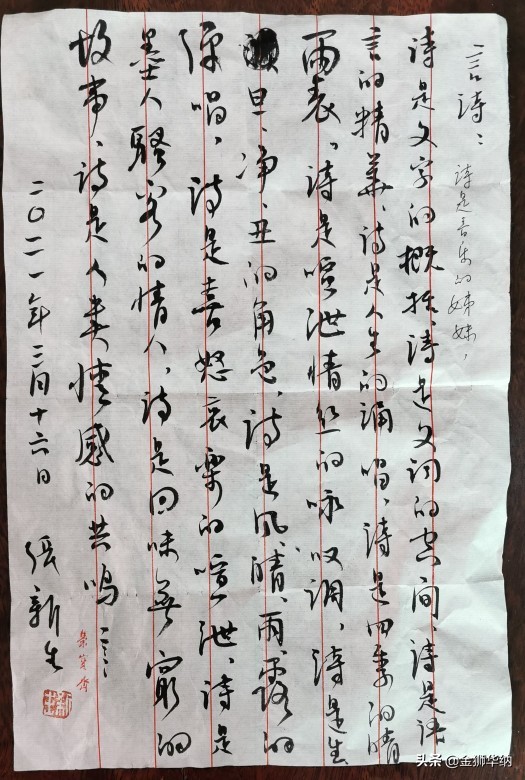 言诗：诗是音乐的姊妹，
诗是文字的概括、诗是文词的空间、诗是语
言的精华、诗是人生的诵唱、诗是四季的晴
雨表，诗是喧泄情丝的咏叹调，诗是生
旦、净、丑的角色、诗是风、晴、雨、露的
弹唱，诗是喜怒哀樂的喧泄，诗是
墨士人骚客的情人，诗是回味無窮的
故事、诗是人类情感的共鸣
二〇二一年三月十六日 张新生
荣宝斋
头条 @金狮华纳